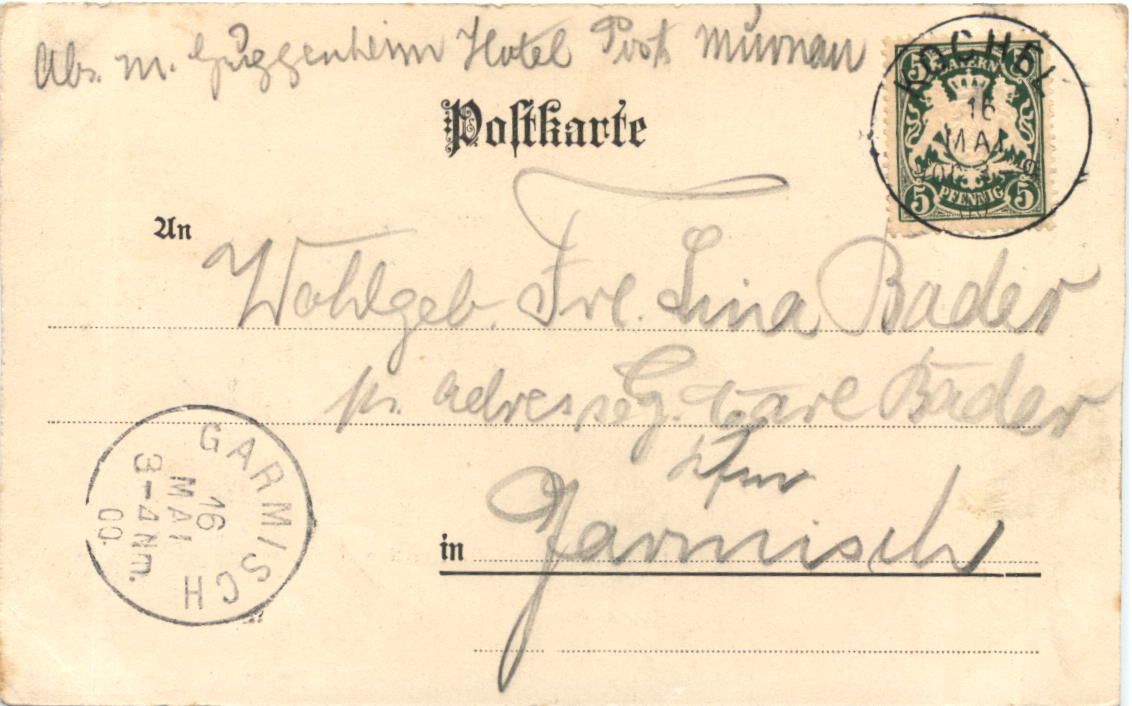 Abs. M. Guggenheim Hotel Post Murnau
Postkarte
KOCHEL
16
MAI
BAYERN
5 5
5 PFENNIG 5
An
Wohlgeb. Frl. Lina Bader
pr. Adresse Hg. Carl Bader
in Garmisch
GARMISCH
16
MAI
3-4 Nm.
00.